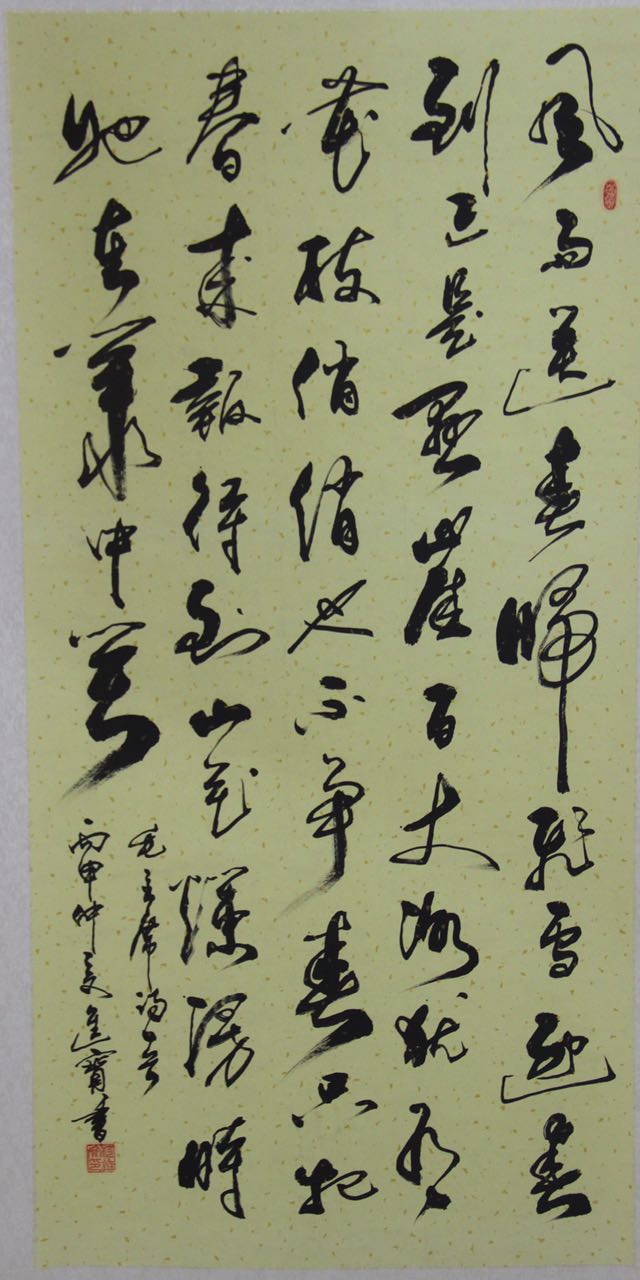 風雨送春歸飛雪迎春
到已是懸崖百丈冰猶有
花枝俏俏也不争春只把
春来報待到山花爛漫時
她在叢中笑
毛主席詩
丙申仲夏進寳書